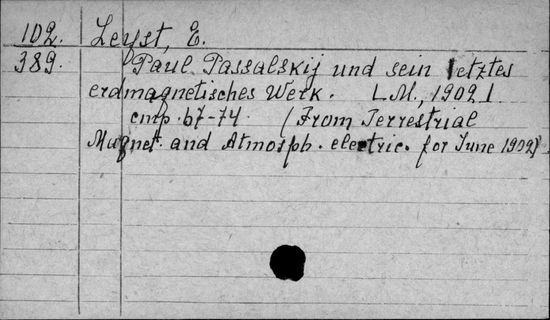 102. Leyst, E.
389. Paul Passalskij und sein letztes
erdmagnetisches Werk. L.M., 1902.
cmp. 67-74. (From Terrestrial
Magnet. and Atmosph. electric. for June 1902)